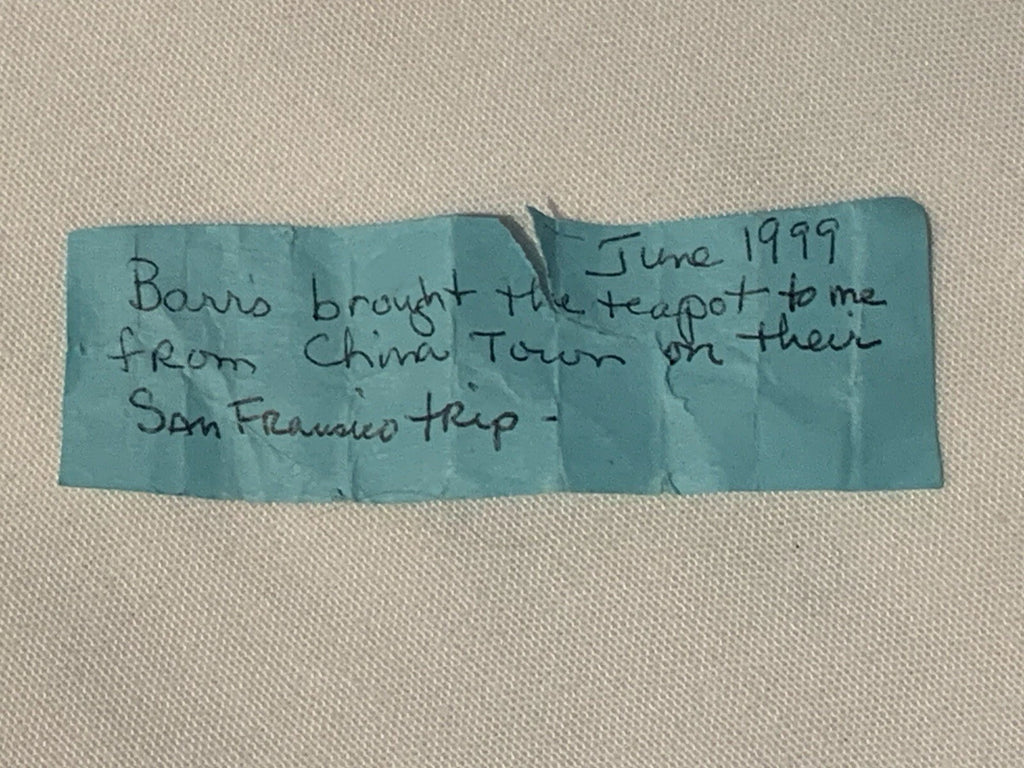 - June 1999
Barrs brought the teapot to me
from China Town on their
San Francisco trip -